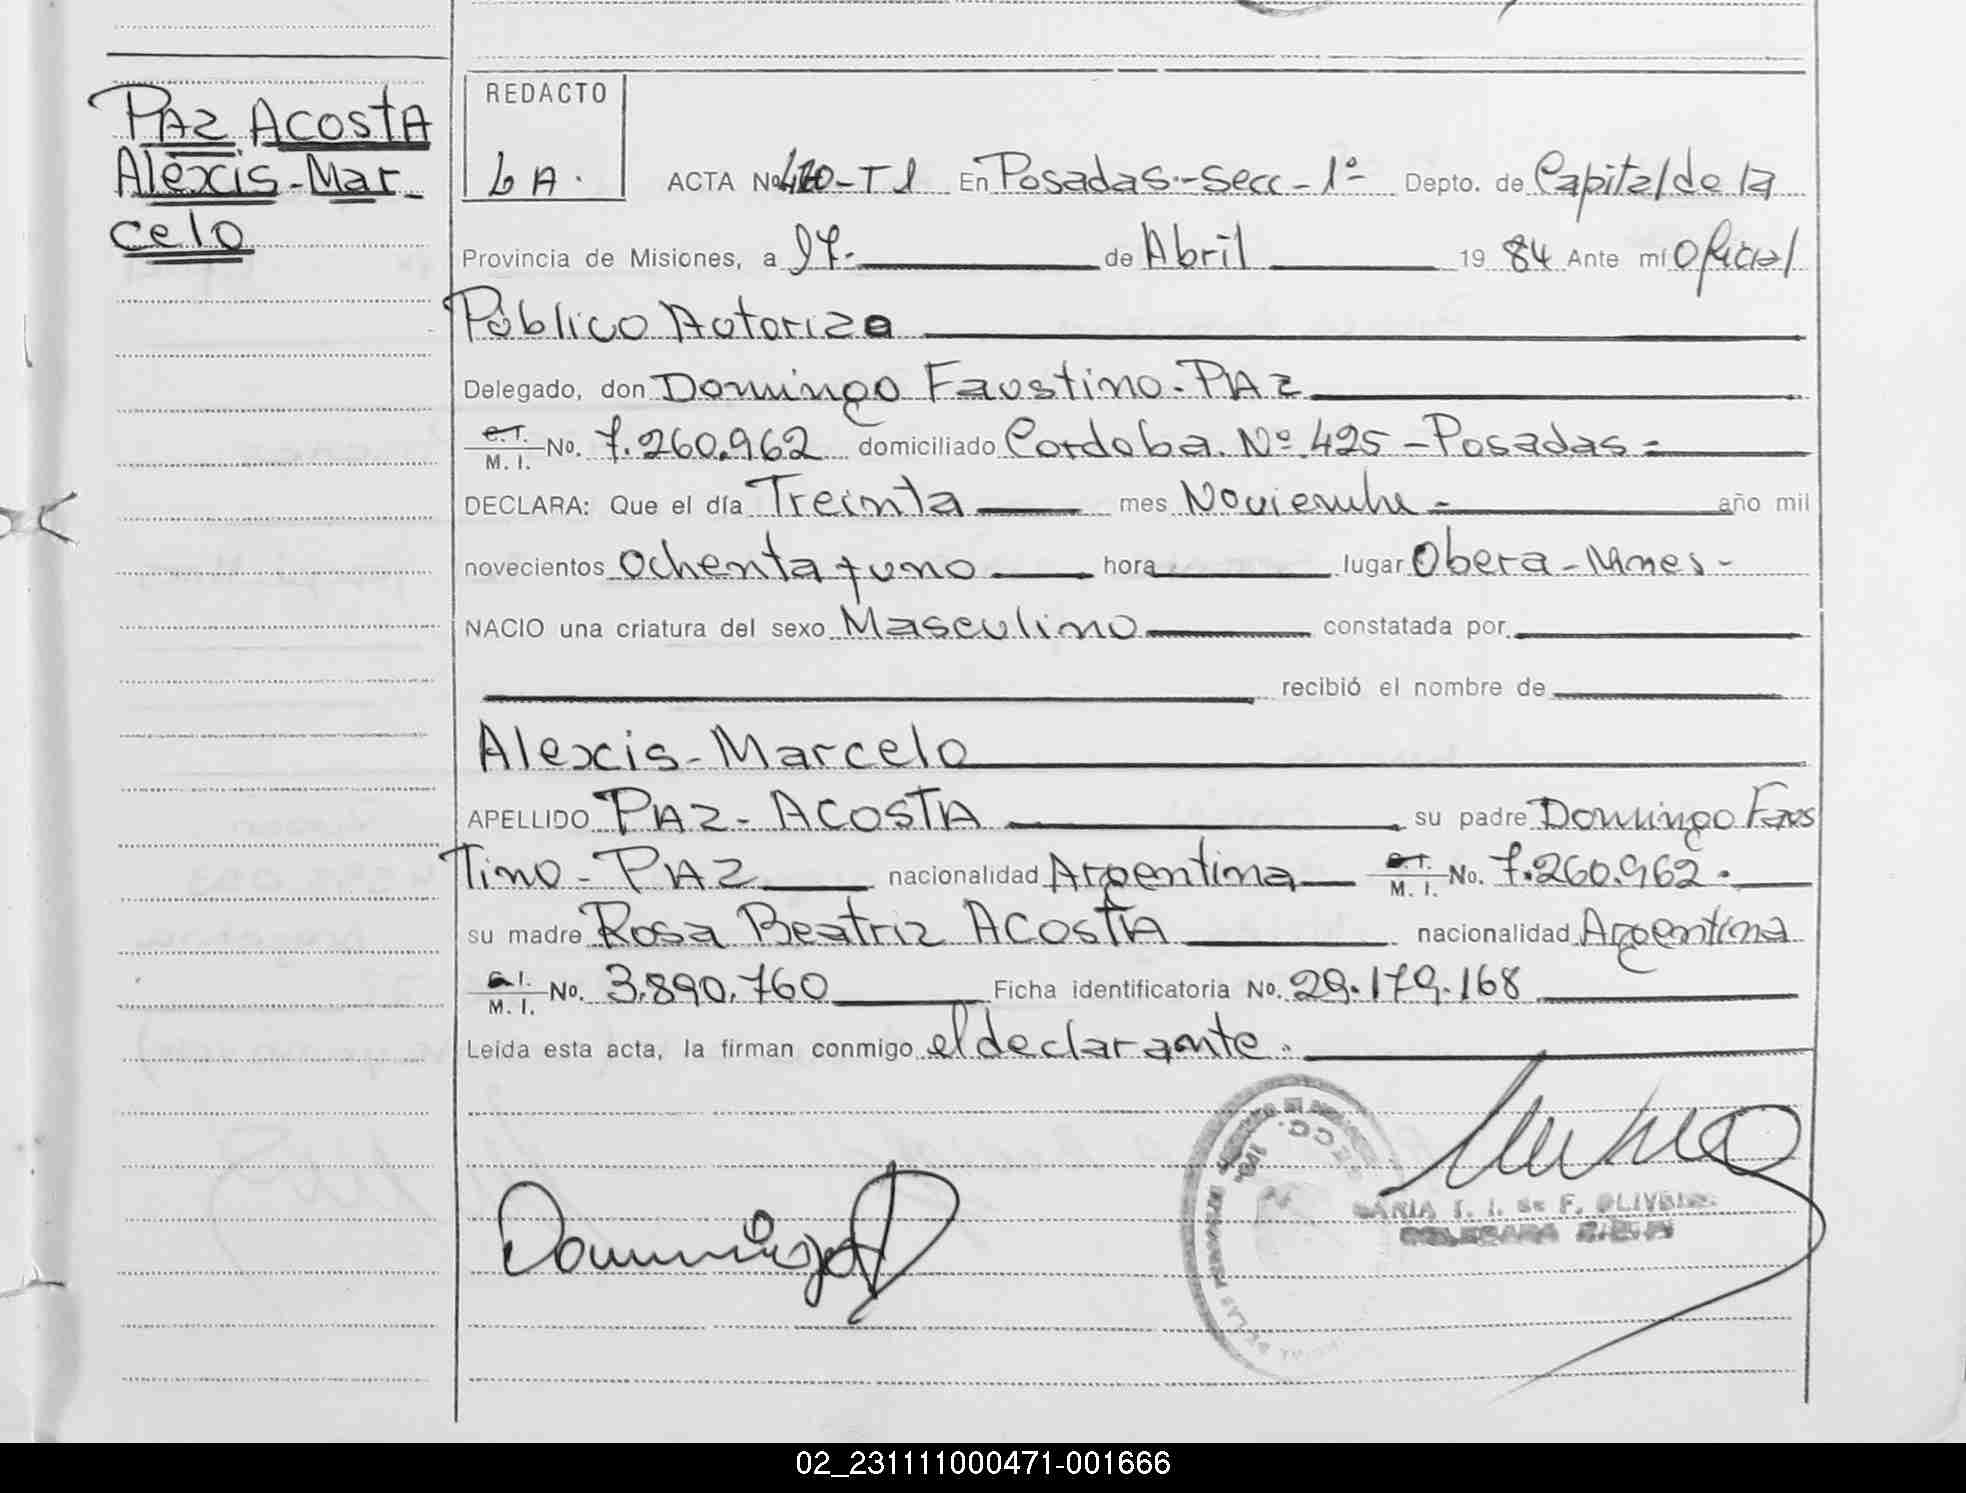 PAZ ACOSTA
Alexis-Mar-
celo
REDACTO
LA.
ACTA No. 420-T1 En Posadas.-Secc-1ª Depto. de Capital de la
Provincia de Misiones, a 27. de Abril 19 84 Ante mí Oficial
Público Autoriza
Delegado, don Domingo Faustino-PAZ
C.I. M. I. No. 7.260.962 domiciliado Cordoba.Nº.425-Posadas=
DECLARA: Que el día Treinta mes Noviembre- año mil
novecientos ochenta y uno hora lugar Obera-Mnes-
NACIO una criatura del sexo Masculino constatada por
recibió el nombre de
Alexis-Marcelo
APELLIDO PAZ-ACOSTA su padre Domingo Faus
Tino-PAZ nacionalidad Argentina C.I. M. I. No. 7.260.962.
su madre Rosa Beatriz ACOSTA nacionalidad Argentina
C.I. M. I. No. 3.890.760 Ficha identificatoria No. 29.179.168
Leída esta acta, la firman conmigo el declarante.
MARIA
DELEGADA
02_231111000471-001666